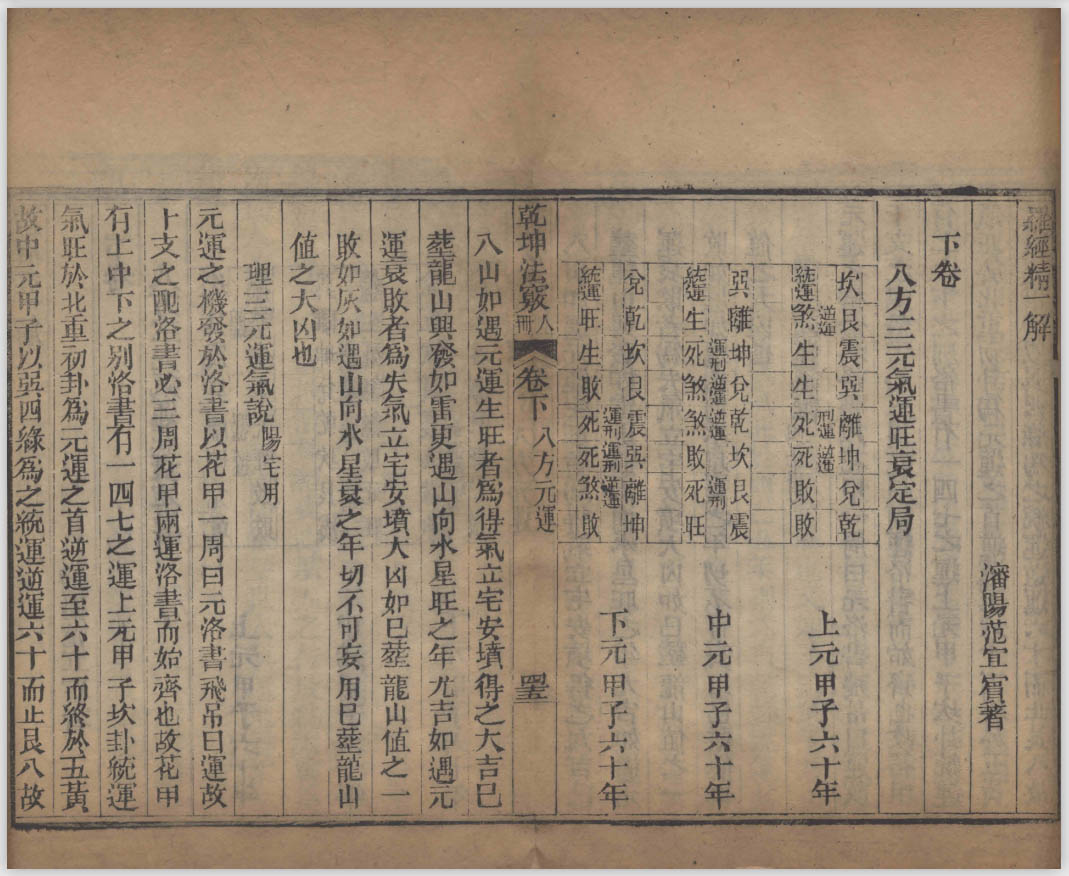 羅經精一解
瀋陽范宜賓著
下卷
八方三元氣運旺衰定局
坎艮震巽離坤兌乾
逆運 刑運 逆運
統運煞生生死死敗敗
上元甲子六十年
巽離坤兌乾坎艮震
運刑 逆運 逆運 運刑
統運生死煞煞敗死旺
中元甲子六十年
兌乾坎艮震巽離坤
運刑 運刑 逆運
統運旺生敗死死煞敗
下元甲子六十年
乾坤法竅 人冊 卷下 八方元運 四五
八山如遇元運生旺者為得氣立宅安墳得之大吉已
塟龍山興發如雷更遇山向水星旺之年尤吉如遇元
運衰敗者為失氣立宅安墳大凶如已塟龍山值之一
敗如灰如遇山向水星衰之年切不可妄用已塟龍山
值之大凶也
理三元運氣說 陽宅用
元運之機發於洛書以花甲一周曰元洛書飛吊曰運故
上支之配洛書必三周花甲兩運洛書而始齊也故花甲
有上中下之別洛書有一四七之運上元甲子坎卦統運
氣旺於北重初卦為元運之首逆運至六十而終於五黃
故中元甲子以巽四綠為之統運逆運六十而止艮八故